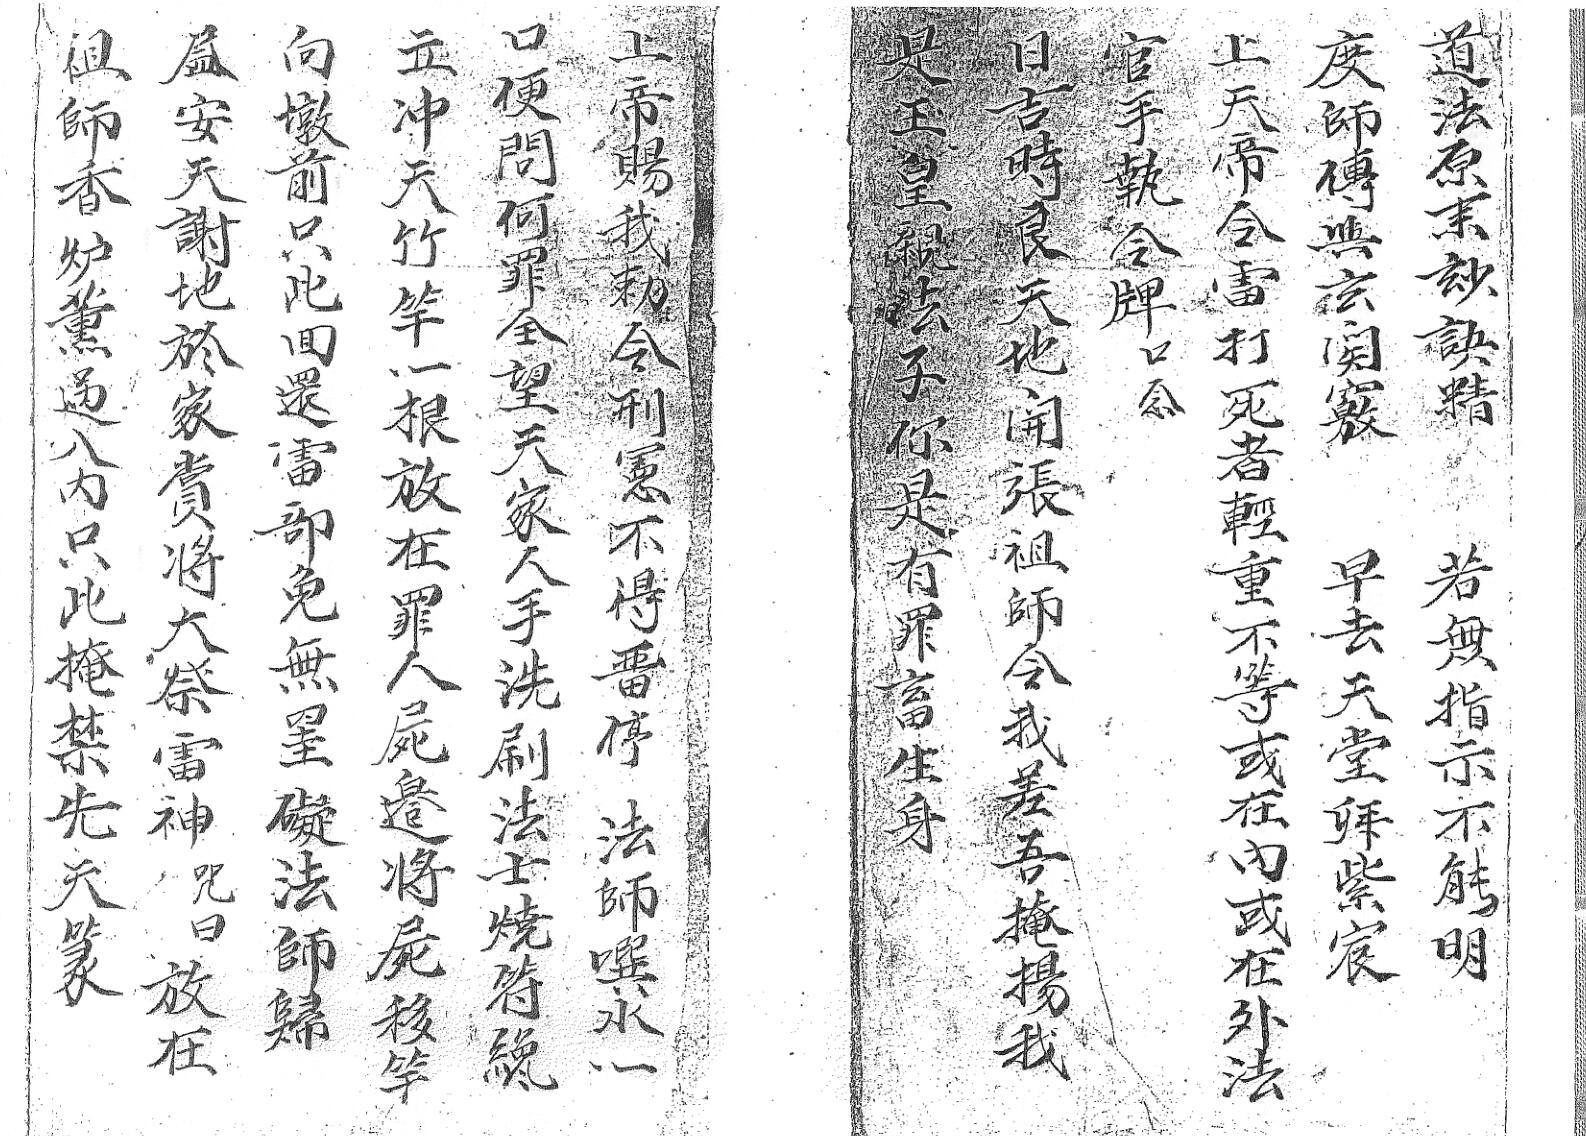 道法原来玅訣精 若無指示不能明
度師傳與玄関竅 早去天堂拜紫宸
上天帝令雷打死者輕重不等或在內或在外法
官手執令牌口念
日吉時良天地開張祖師令我差吾掩揚我
是玉皇親法子你是有罪畜生身
上帝賜我勅令刑憲不得畱停 法師噀水一
口便問何罪全望天家人手洗刷法士燒符纔
立冲天竹竿一根放在罪人屍邉将屍移竿
向墩前只此回還雷部免無罣礙法師歸
屋安天謝地於家賞将大祭雷神咒曰放在
祖師香炉薰過八内只此掩禁先天篆